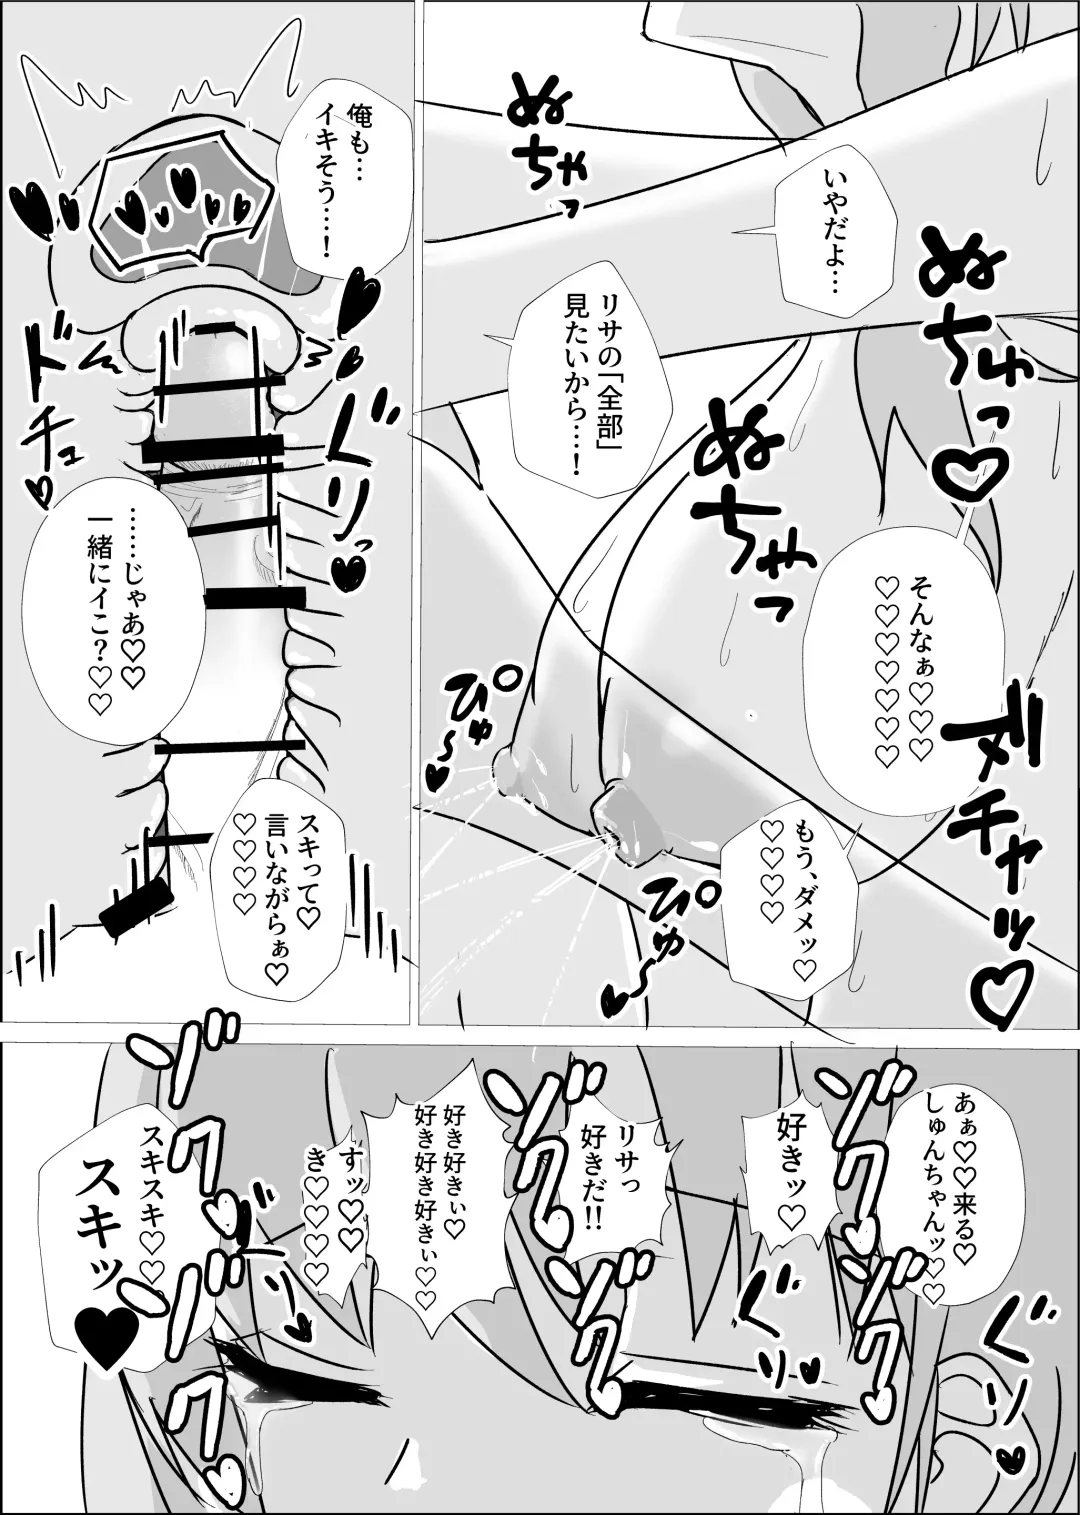 ぬちゃっ
いやだよ…
リサの「全部」
見たいから…！
ぬちゅっ♡
ぬちゃっ
そんなぁ♡♡♡
♡♡♡♡♡♡♡
ぴゅ～♥
もう、ダメッ♡
♡♡♡♡
ぴゅ～♥
俺も…
イキそう…！
ドチュ♥
ぐりっ♥
……じゃあ♡♡
一緒にイこ？♡♡
スキって♡
言いながらぁ♡
♡♡♡♡
あぁ♡♡来る♡
しゅんちゃんッ♡♡
ゾクゾク
好きッ♡
ぐり♥
ぐり♥
リサっ
好きだ!!
ゾクゾク
好き好きぃ♡
好き好き好きぃ♡♡
すッ♡♡
き♡♡♡♡
ぐーり♥
ゾク♡ゾク
スキスキ♡♡
スキッ♥